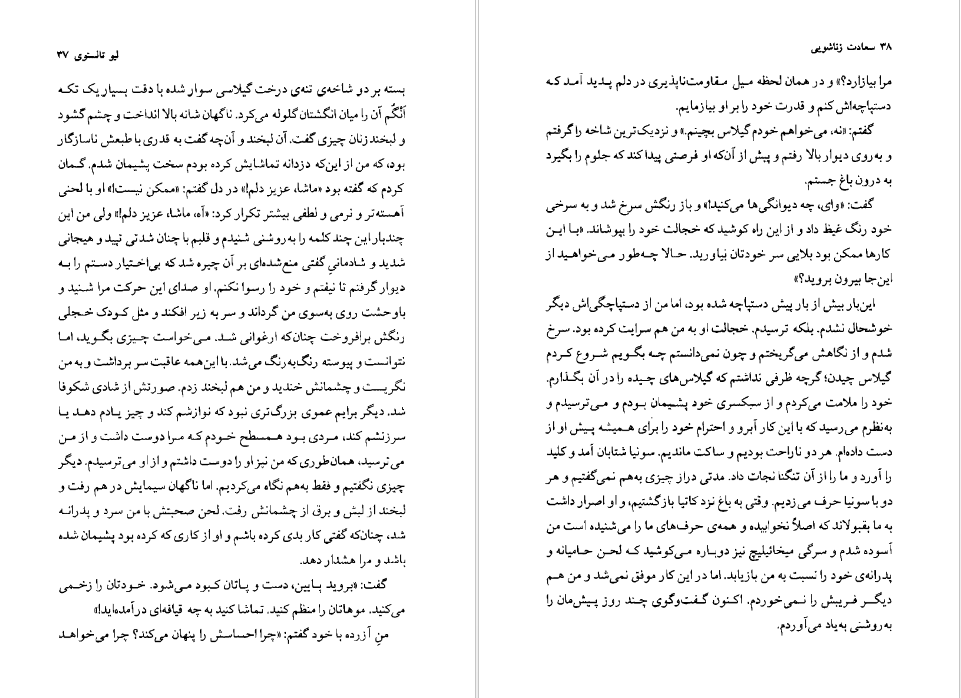 لیو تالستوی ۳۷
بسته بر دو شاخه‌ی تنه‌ی درخت گیلاسی سوار شده با دقت بسیار یک تکه
اَنْگُم آن را میان انگشتان گلوله می‌کرد. ناگهان شانه بالا انداخت و چشم گشود
و لبخند زنان چیزی گفت. آن لبخند و آن‌چه گفت به قدری با طبعش ناسازگار
بود، که من از این‌که دزدانه تماشایش کرده بودم سخت پشیمان شدم. گمان
کردم که گفته بود «ماشا، عزیز دلم!» در دل گفتم: «ممکن نیست!» او با لحنی
آهسته‌تر و نرمی و لطفی بیشتر تکرار کرد: «آه، ماشا، عزیز دلم!» ولی من این
چندبار این چند کلمه را به‌روشنی شنیدم و قلبم با چنان شدتی تپید و هیجانی
شدید و شادمانیِ گفتی منع‌شده‌ای بر آن چیره شد که بی‌اختیار دستم را به
دیوار گرفتم تا نیفتم و خود را رسوا نکنم. او صدای این حرکت مرا شنید و
باوحشت روی به‌سوی من گرداند و سر به زیر افکند و مثل کودک خجلی
رنگش برافروخت چنان‌که ارغوانی شد. می‌خواست چیزی بگوید، اما
نتوانست و پیوسته رنگ‌به‌رنگ می‌شد. با این‌همه عاقبت سر برداشت و به من
نگریست و چشمانش خندید و من هم لبخند زدم. صورتش از شادی شکوفا
شد. دیگر برایم عموی بزرگ‌تری نبود که نوازشم کند و چیز یادم دهد یا
سرزنشم کند، مردی بود همسطح خودم که مرا دوست داشت و از من
می‌ترسید، همان‌طوری که من نیز او را دوست داشتم و از او می‌ترسیدم. دیگر
چیزی نگفتیم و فقط به‌هم نگاه می‌کردیم. اما ناگهان سیمایش در هم رفت و
لبخند از لبش و برق از چشمانش رفت. لحن صحبتش با من سرد و پدرانه
شد، چنان‌که گفتی کار بدی کرده باشم و او از کاری که کرده بود پشیمان شده
باشد و مرا هشدار دهد.
گفت: «بروید پایین، دست و پاتان کبود می‌شود. خودتان را زخمی
می‌کنید. موهاتان را منظم کنید. تماشا کنید به چه قیافه‌ای درآمده‌اید!»
منِ آزرده با خود گفتم: «چرا احساسش را پنهان می‌کند؟ چرا می‌خواهد
۳۸ سعادت زناشویی
مرا بیازارد؟» و در همان لحظه میل مقاومت‌ناپذیری در دلم پدید آمد که
دستپاچه‌اش کنم و قدرت خود را بر او بیازمایم.
گفتم: «نه، می‌خواهم خودم گیلاس بچینم.» و نزدیک‌ترین شاخه را گرفتم
و به‌روی دیوار بالا رفتم و پیش از آن‌که او فرصتی پیدا کند که جلوم را بگیرد
به درون باغ جستم.
گفت: «وای، چه دیوانگی‌ها می‌کنید!» و باز رنگش سرخ شد و به سرخی
خود رنگ غیظ داد و از این راه کوشید که خجالت خود را بپوشاند. «با این
کارها ممکن بود بلایی سر خودتان نیاورید. حالا چه‌طور می‌خواهید از
این‌جا بیرون بروید؟»
این‌بار بیش از بار پیش دستپاچه شده بود، اما من از دستپاچگی‌اش دیگر
خوشحال نشدم. بلکه ترسیدم. خجالت او به من هم سرایت کرده بود. سرخ
شدم و از نگاهش می‌گریختم و چون نمی‌دانستم چه بگویم شروع کردم
گیلاس چیدن؛ گرچه ظرفی نداشتم که گیلاس‌های چیده را در آن بگذارم.
خود را ملامت می‌کردم و از سبکسری خود پشیمان بودم و می‌ترسیدم و
به‌نظرم می‌رسید که با این کار آبرو و احترام خود را برای همیشه پیش او از
دست داده‌ام. هر دو ناراحت بودیم و ساکت ماندیم. سونیا شتابان آمد و کلید
را آورد و ما را از آن تنگنا نجات داد. مدتی دراز چیزی به‌هم نمی‌گفتیم و هر
دو با سونیا حرف می‌زدیم. وقتی به باغ نزد کاتیا بازگشتیم، و او اصرار داشت
به ما بقبولاند که اصلاً نخوابیده و همه‌ی حرف‌های ما را می‌شنیده است من
آسوده شدم و سرگی میخائیلیچ نیز دوباره می‌کوشید که لحن حامیانه و
پدرانه‌ی خود را نسبت به من بازیابد. اما در این کار موفق نمی‌شد و من هم
دیگر فریبش را نمی‌خوردم. اکنون گفت‌وگوی چند روز پیش‌مان را
به‌روشنی به‌یاد می‌آوردم.